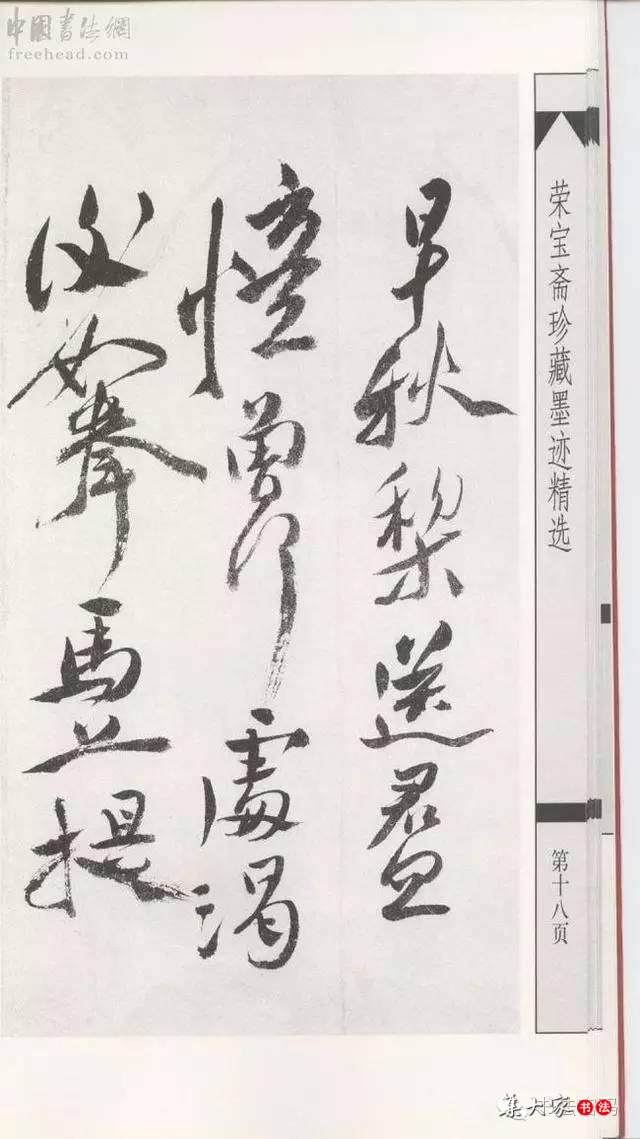 中國書法網
freehead.com
早秋梨送
憶曾行處渴
如拳馬上提
荣宝斋珍藏墨迹精选
第十八页
集大家书法